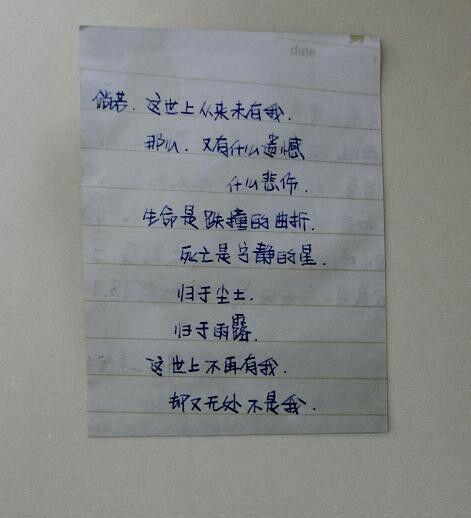 date
倘若.这世上从来未有我.
那么.又有什么遗憾
什么悲伤.
生命是跌撞的曲折.
死亡是宁静的星.
归于尘土.
归于雨露.
这世上不再有我.
却又无处不是我.